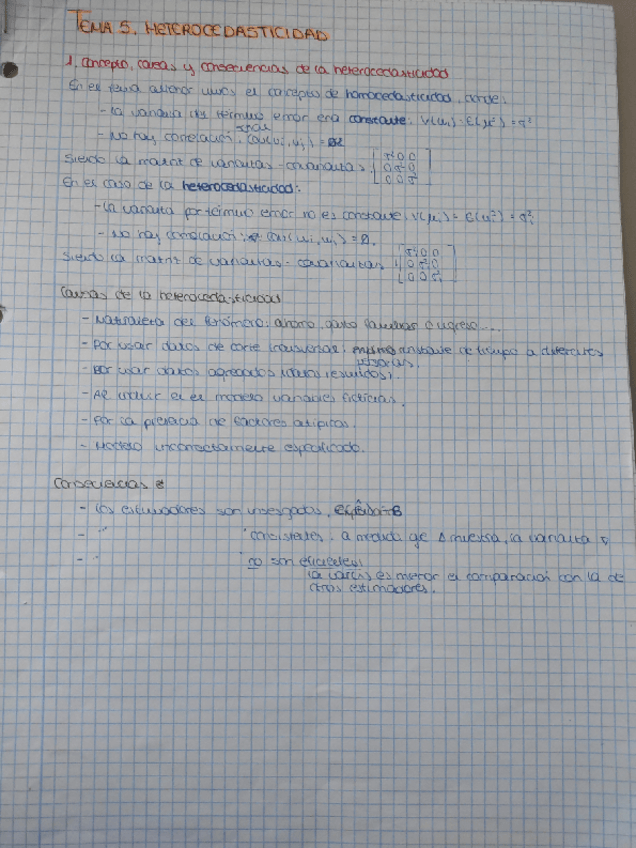 TEMA 5. HETEROCEDASTICIDAD
1. Concepto, causas y consecuencias de la heterocedasticidad
En el tema anterior vimos el concepto de homocedasticidad, donde:
- La varianza del término error era constante: V(ui) = E(ui²) = σ²
- No hay correlación: cov(ui, uj) = 0
Siendo la matriz de varianzas-covarianzas:
En el caso de la heterocedasticidad:
- La varianza por término error no es constante, V(μi) = E(ui²) = σ²i
- No hay correlación: cov(ui, uj) = 0.
Siendo la matriz de varianzas-covarianzas
Causas de la heterocedasticidad
- Naturaleza del fenómeno: ahorro, gasto familias o ingreso...
- Por usar datos de corte transversal: mismo instante de tiempo a diferentes
- Por usar datos agregados
- Al incluir en el modelo variables ficticias.
- Por la presencia de factores atípicos.
- Modelo incorrectamente especificado.
Consecuencias
- Los estimadores son insesgados,
- " " consistentes: a medida que Δ muestra, la varianza ∇
- " " no son eficientes:
la varianza es menor en comparación con la de
otros estimadores.